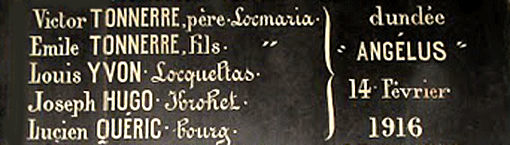 Victor TONNERRE, père · Locmaria ·
Emile TONNERRE, fils · "
Louis YVON · Locqueltas ·
Joseph HUGO · Krohet ·
Lucien QUÉRIC · bourg ·
dundée
" ANGÉLUS "
14 · Février
1916